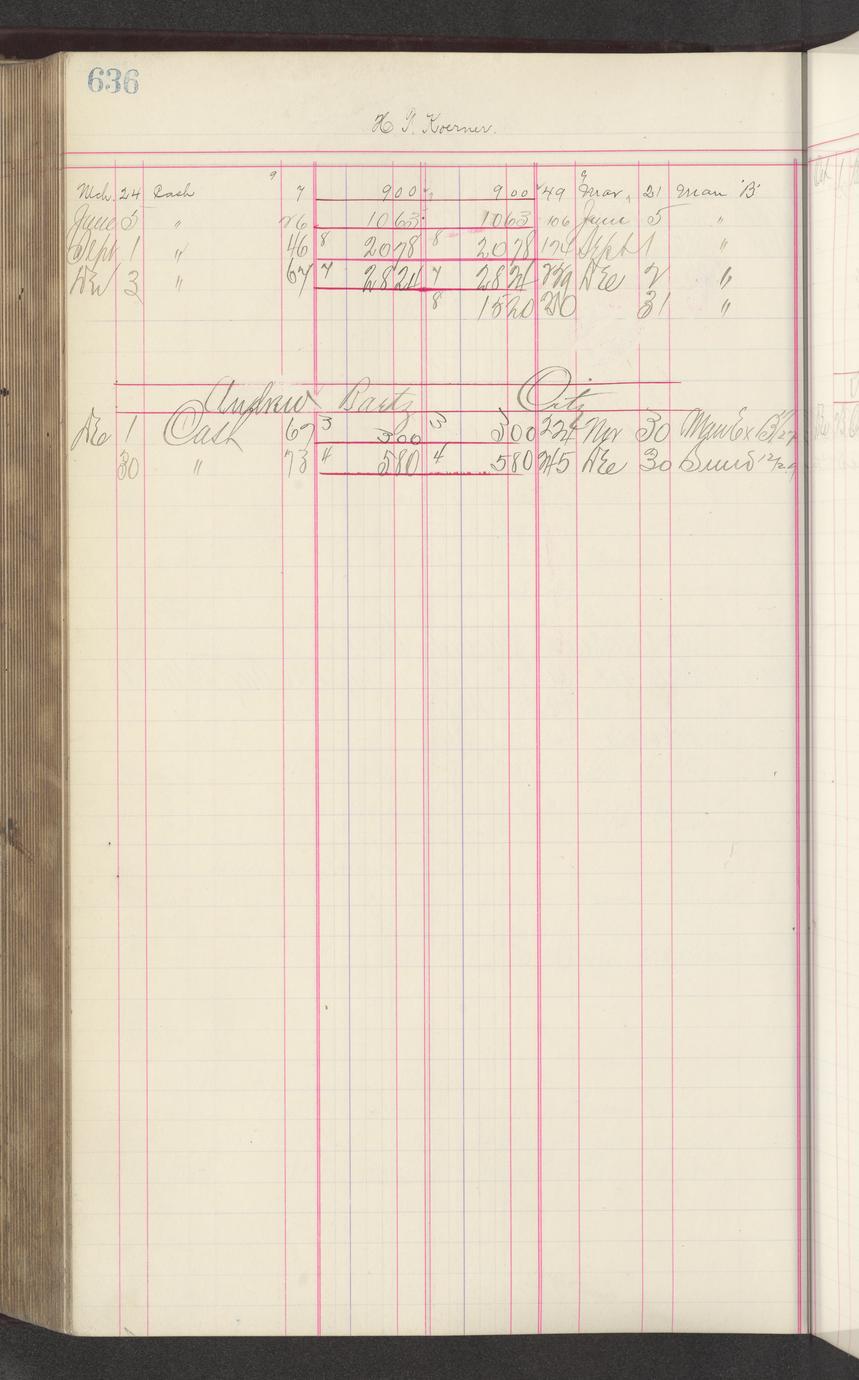 636
H. T. Koerner.
9
Mch. 24 Cash 7 9 00 9 00 49 Mar, 21 Man 'B'
June 5 " 26 10 63 10 63 106 June 5 "
Sept 1 " 46 8 20 78 8 20 78 174 Sept 1 "
Dec 3 " 67 7 28 24 7 28 24 239 Dec 2 "
8 15 20 240 31 "
Andrew Bartz City
Dec 1 Cash 67 3 3 00 3 3 00 224 Nov 30 Man Ex B
30 " 73 4 5 80 4 5 80 245 Dec 30 12/29